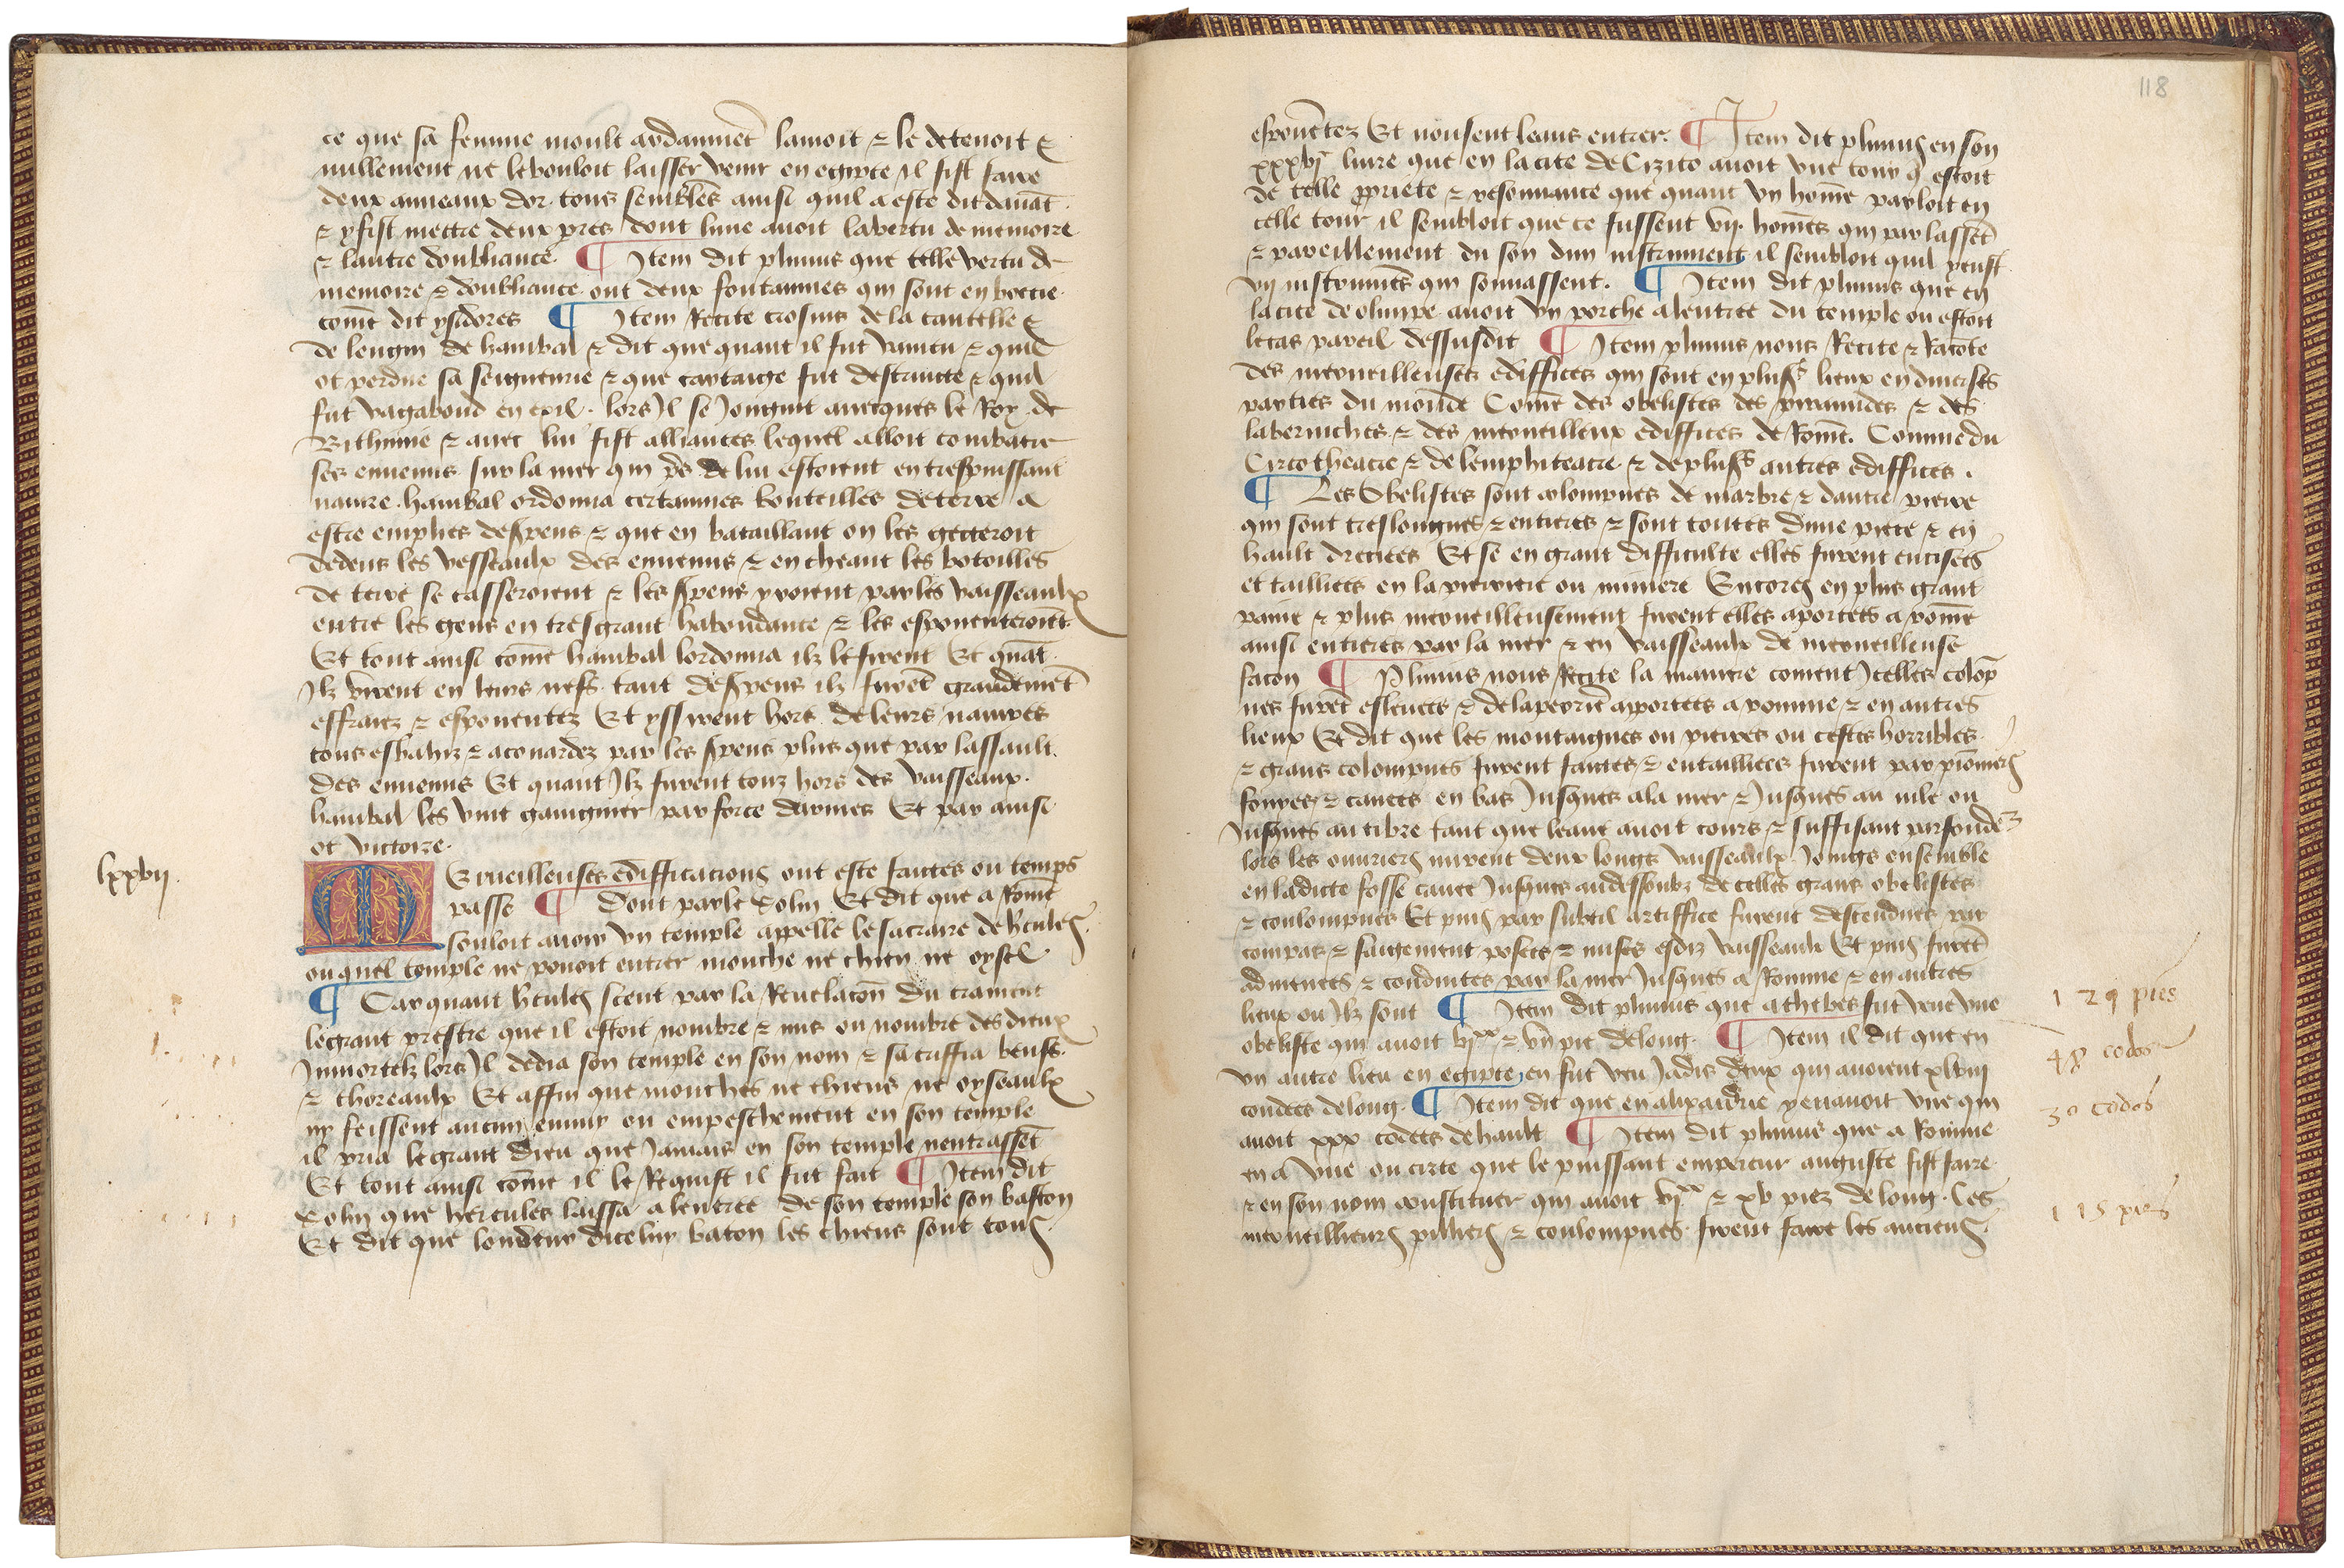 ce que sa femme moult ardanmēt lamoit ⁊ le detenoit ⁊
nullement ne le vouloit laisser venir en egipte il fist faire
deux anneaux dor tous semblēs ainsi quil a este dit dauāt
⁊ y fist mettre deux pres dont lune auoit la vertu de memoire
⁊ lautre doubliance ¶ Item dit plinius que telle vertu de
memoire ⁊ doubliance ont deux fontainnes qui sont en boecie
comē dit ysidores ¶ Item Recite trosius de la cautelle ⁊
de lengin de hanibal ⁊ dit que quant il fut vaincu ⁊ quil
ot perdue sa seigneurie ⁊ que cartaige fut destruicte ⁊ quil
fut vagabond en exil. lors Il se Joingnit auecques le Roy de
Bithinie ⁊ auec lui fist alliances lequel alloit combatre
ses ennemis sur la mer qui de lui estoient en trespuissant
nauire. hanibal ordonna certainnes bouteilles de terre a
estre emplies de serpens ⁊ que en bataillant on les getteroit
dedens les vesseaulx des ennemis ⁊ en cheant les botoilles
de terre se casseroient ⁊ les serpens yroient par les vaisseaulx
entre les gens en tresgrant habondance ⁊ les espouenteroiēt.
Et tout ainsi comē hanibal lordonna ilz le firent Et quāt
Ilz virent en leurs nefs tant de serpens ilz furēt grandemēt
effraiez ⁊ espouentez Et yssirent hors de leurs nauires
tous esbahiz ⁊ acouardez par les serpens plus que par lassault
des ennemis Et quant Ilz furent touz hors des vaisseaux.
hanibal les vint gaingnier par force darmes Et par ainsi
ot victoire.
lxxvij.
MErueilleuses edifficacions ont este faictes ou temps
passe ¶ Dont parle Solin Et dit que a Rome
souloit auoir vn temple appelle le sacraire de hercules.
ouquel temple ne pouoit entrer mouche ne chien ne oysel
¶ Car quant hercules sceut par la Reuelacoñ du
le grant prestre que il estoit nombre ⁊ mis ou nombre des dieux
Inmortelz lors Il dedia son temple en son nom ⁊ sacriffia beufs.
⁊ thoreaulx Et affin que mouches ne chiens ne oyseaulx
ny feissent aucun ennuy ou empeschement en son temple
il pria le grant dieu que Jamais en son temple nentrassēt
Et tout ainsi comē il le Requist il fut fait ¶ Item dit
Solin que hercules laissa a lentree de son temple son baston
Et dit que londeur dicelui baton les chiens sont tous
118
espouētez Et nousent leans entrer. ¶ Item dit plinius en son
xxxvjᵉ liure que en la cite de Cizico auoit vne tour q̄ estoit
de telle ꝓpriete ⁊ resonnance que quant vn homē parloit en
celle tour il sembloit que ce fussent vij. homēs qui parlassēt
⁊ pareillement du son dun instrument il sembloit quil y eust
vij instrumēs qui sonnassent. ¶ Item dit plinius que en
la cite de olimpe auoit vn porche a lentree du temple ou estoit
le cas pareil dessusdit ¶ Item plinius nous Recite ⁊ Racōte
des merueilleuses ediffices qui sont en plusˢ lieux en diuerses
parties du monde Comē des obelistes des piramides ⁊ des
laberinthes ⁊ des merueilleux ediffices de Romē. Comme du
Circo theatre ⁊ de lemphiteatre ⁊ de plusˢ autres ediffices.
¶ Les Obelistes sont colompnes de marbre ⁊ dautre pierre
qui sont treslongues ⁊ entieres ⁊ sont toutes dune piece ⁊ en
hault drecees Et se en grant difficulte elles furent encisees
et taillees en la pierriere ou miniere Encores en plus grant
paine ⁊ plus merueilleusement furent elles aportees a romē
ainsi entieres par la mer ⁊ en vaisseaulx de merueilleuse
facon ¶ Plinius nous Recite la maniere coment Icelles colōp
nes furēt esleuees ⁊ de la perriē aportees a romme ⁊ en autres
lieux Et dit que les montaignes ou pierres ou cestes horribles
⁊ grans colompnes furent faictes ⁊ entaillees furent par pionniers
fouyes ⁊ cauees en bas Jusques a la mer ⁊ Jusques au nile ou
Jusques au tibre tant que leaue auoit cours ⁊ suffisant parfonde²
lors les ouuriers mirent deux longs vaisseaulx Joings ensemble
en ladicte fosse cauee Jusques au dessoubz de celles grans obelistes
⁊ coulompnes Et puis par subtil artiffice furent descendues par
compas ⁊ saigement posees ⁊ mises esdiz vaisseaulx Et puis furēt
admenees ⁊ conduites par la mer Jusques a Romme ⁊ en autres
lieux ou Ilz sont ¶ Item dit plinius que a thebes fut veue vne
obeliste qui auoit vjˣˣ ⁊ vn pie de long. ¶ Item il dit que en
vn autre lieu en egipte, en fut veu Jadis deux qui auoient xlviij
coudees de long. ¶ Item dit que en alixandrie y en auoit vne qui
auoit xxx codees de hault ¶ Item dit plinius que a Romme
en a vne ou cirte que le puissant empereur auguste fist faire
⁊ en son nom constituer qui auoit vjˣˣ ⁊ xv piez de long. Ces
merueilleurs pilliers ⁊ coulompnes firent faire les anciens
1 29 pies
48 codos
30 codos
1 15 pies